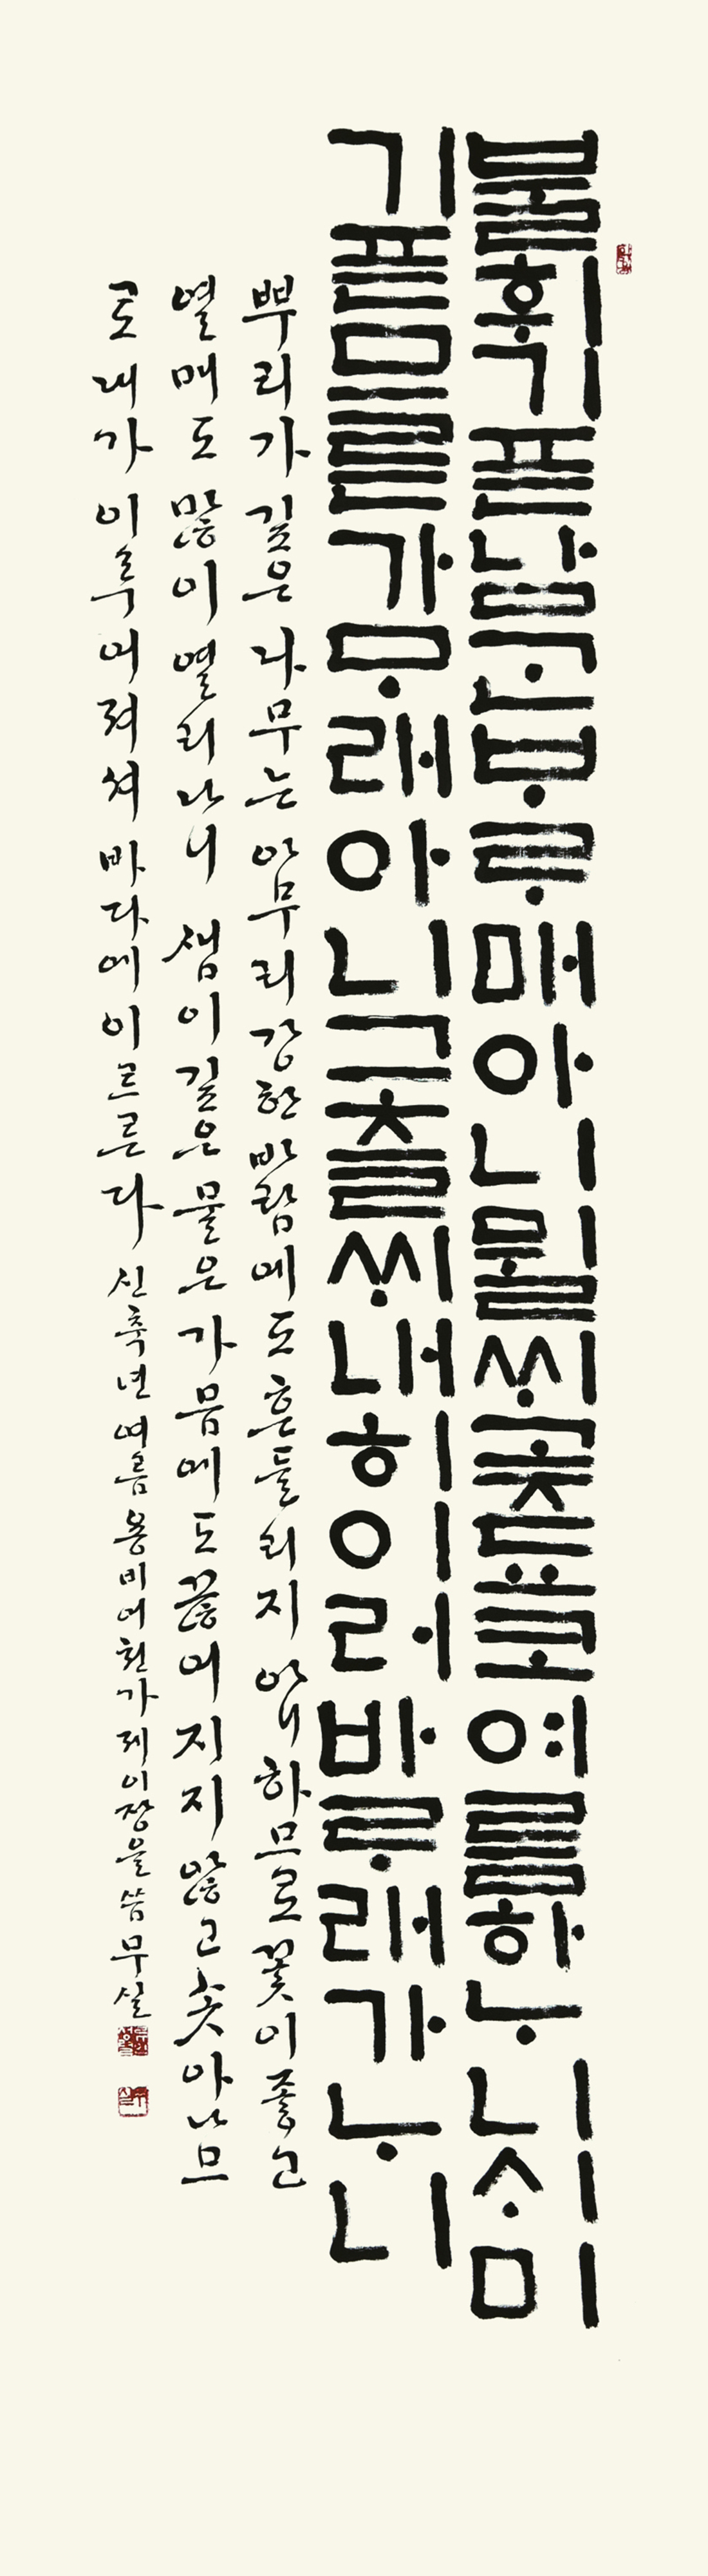 불휘기픈남ᄀᆞᆫᄇᆞᄅᆞ매아니뮐ᄊᆡ곶됴코여름하ᄂᆞ니ᄉᆡ미
기픈므른가ᄆᆞ래아니그츨ᄊᆡ내히이러바ᄅᆞ래가ᄂᆞ니
뿌리가 깊은 나무는 아무리 강한 바람에도 흔들리지 아니하므로 꽃이 좋고
열매도 많이 열리나니 샘이 깊은 물은 가뭄에도 끊어지지 않고 솟아나므
로 내가 이루어져서 바다에 이르른다 신축년 여름 용비어천가 제이장을 씀 무실